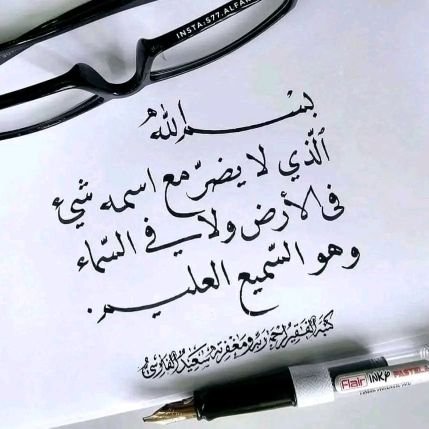 INSTA:S77.ALFAR
بسم الله
الّذي لا يضرّ مع اسمه شيء
في الأرض ولا في السّماء
وهو السّميع العليم.
كتبه الفقير إلى ربه ومغفرته سعيد الفارسي
Flair INKY PASTELS